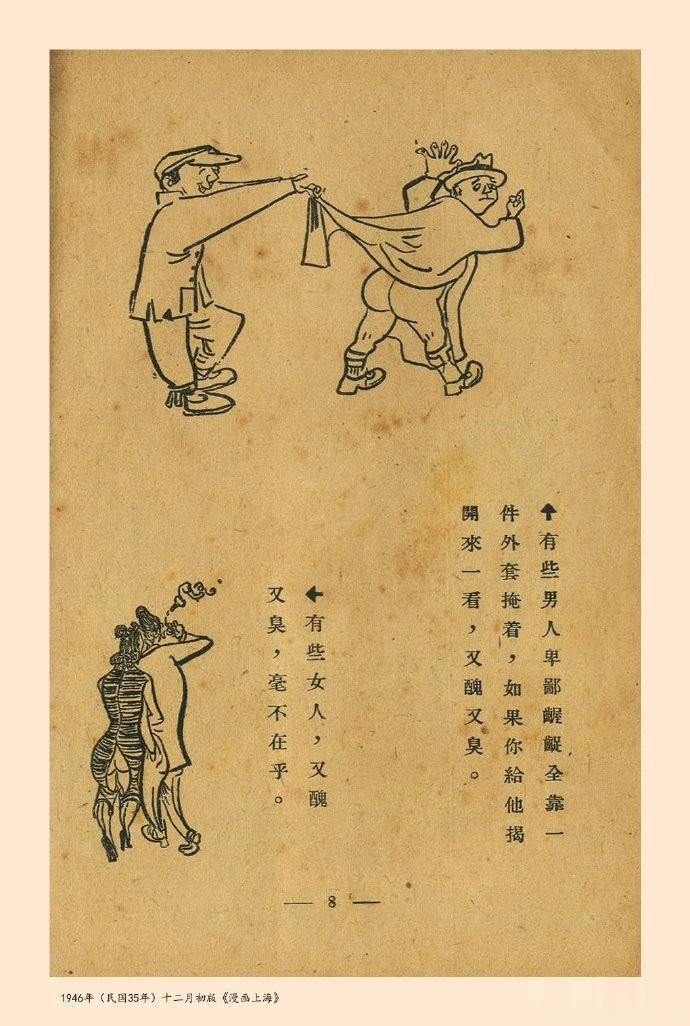 ↑有些男人卑鄙齷齪全靠一
件外套掩着，如果你給他揭
開來一看，又醜又臭。
←有些女人，又醜
又臭，毫不在乎。
— 8 —
1946年（民国35年）十二月初版《漫画上海》